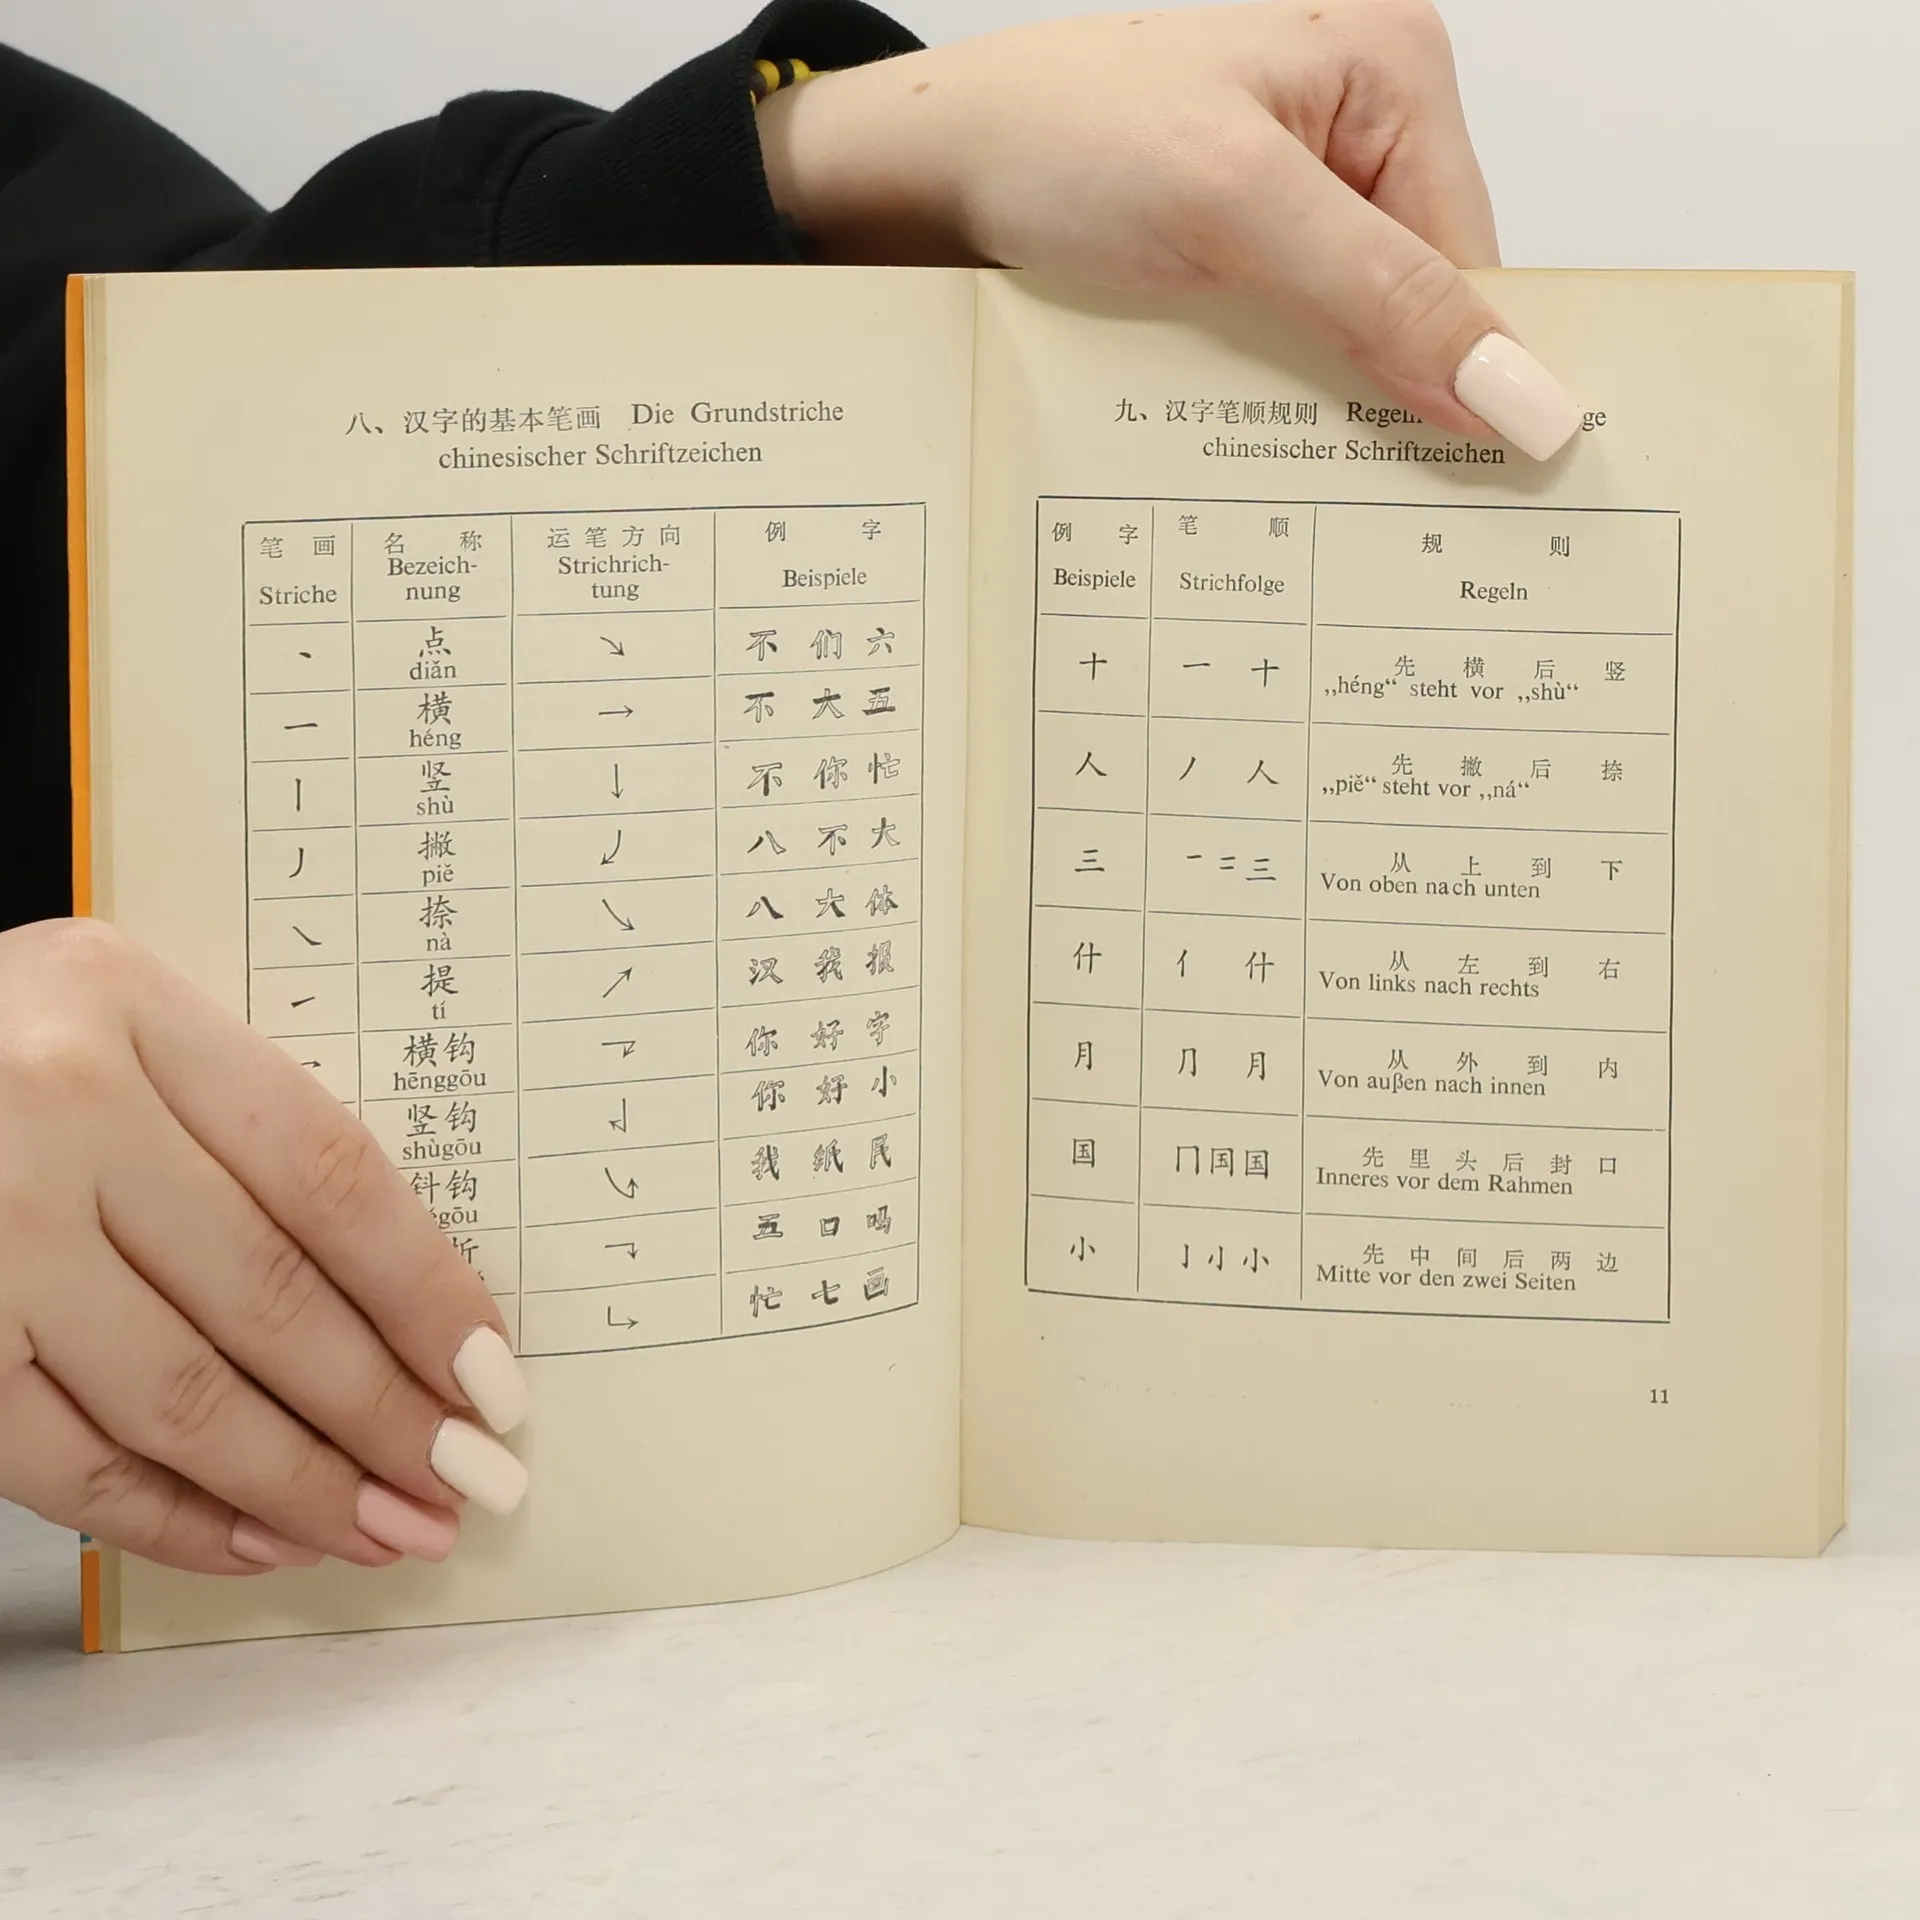 八、汉字的基本笔画 Die Grundstriche
chinesischer Schriftzeichen
笔画 名称 运笔方向 例字
Striche Bezeich- Strichrich- Beispiele
nung tung
丶 点 ↘ 不 们 六
diǎn
一 横 → 不 大 五
héng
丨 竖 ↓ 不 你 忙
shù
丿 撇 ↙ 八 不 大
piě
㇏ 捺 ↘ 八 大 体
nà
㇀ 提 ↗ 汉 我 报
tí
横钩 你 好 字
hēnggōu
竖钩 你 好 小
shùgōu
斜钩 我 纸 民
gōu
折 五 口 吗
忙 七 画
九、汉字笔顺规则 Regeln ge
chinesischer Schriftzeichen
例字 笔顺 规则
Beispiele Strichfolge Regeln
十 一 十 先横后竖
„héng“ steht vor „shù“
人 丿 人 先撇后捺
„piě“ steht vor „ná“
三 一 二 三 从上到下
Von oben nach unten
什 亻 什 从左到右
Von links nach rechts
月 ⺆ 月 从外到内
Von außen nach innen
国 冂 国 国 先里头后封口
Inneres vor dem Rahmen
小 亅 小 小 先中间后两边
Mitte vor den zwei Seiten
11